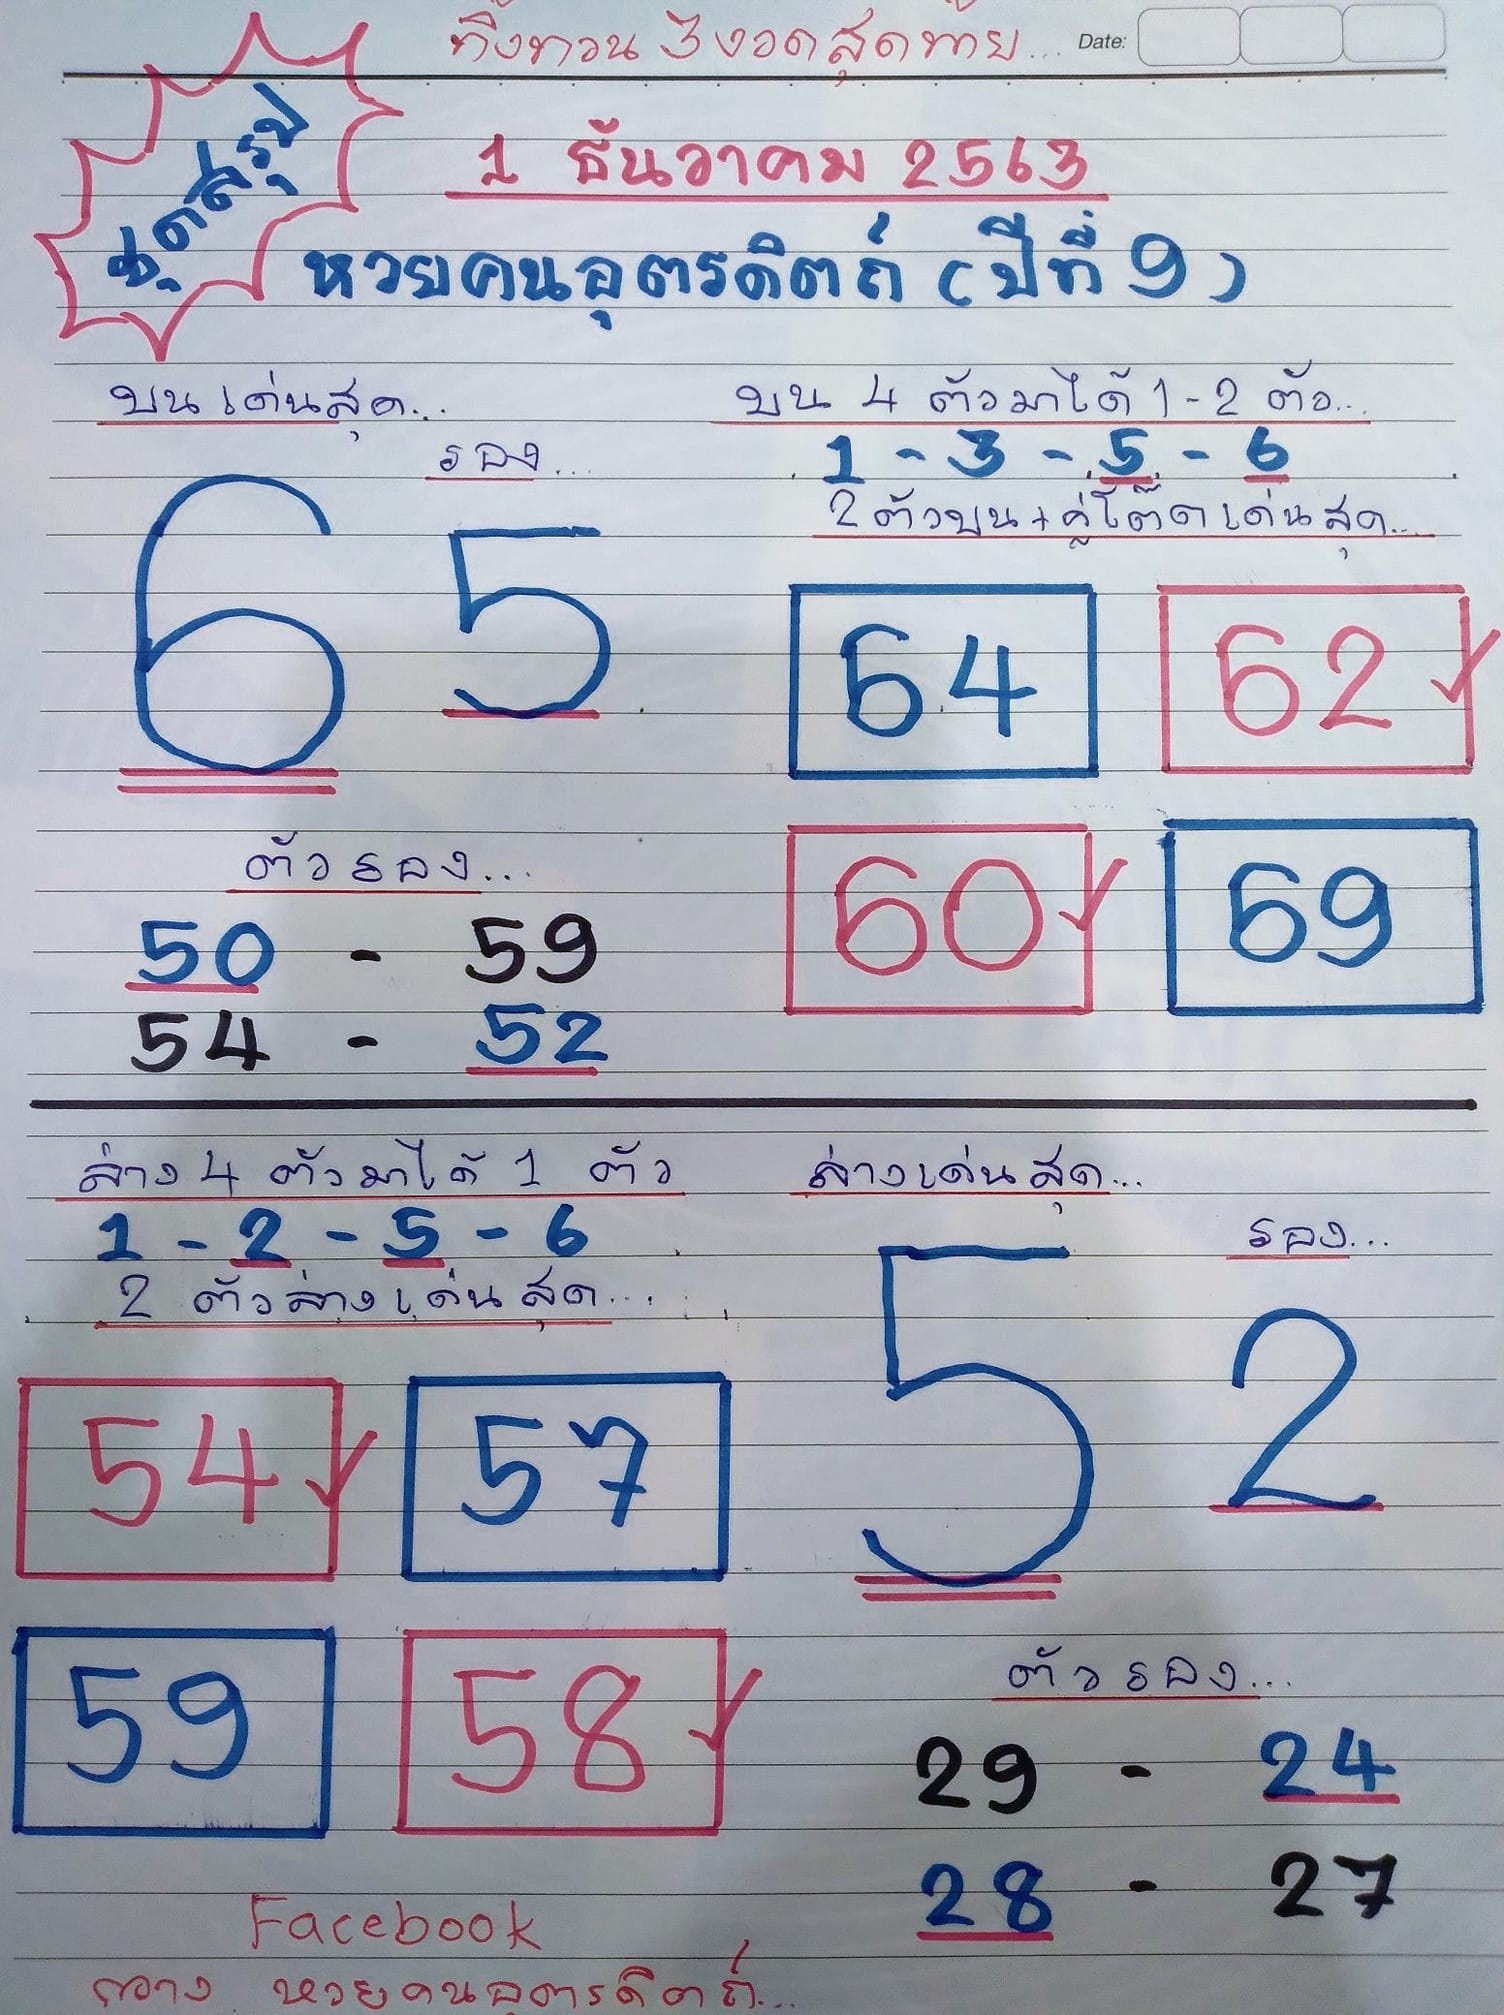 ทิ้งทวน 3 งวดสุดท้าย...
Date:
ชุดสรุป
1 ธันวาคม 2563
หวยคนอุตรดิตถ์ (ปีที่ 9)
บนเด่นสุด...
รอง...
6 5
บน 4 ตัวมาได้ 1-2 ตัว...
1 - 3 - 5 - 6
2 ตัวบน + คู่โต๊ดเด่นสุด...
64 62
60 69
ตัวรอง...
50 - 59
54 - 52
ล่าง 4 ตัวมาได้ 1 ตัว
1 - 2 - 5 - 6
2 ตัวล่างเด่นสุด...
54 57
59 58
ล่างเด่นสุด...
รอง...
5 2
ตัวรอง...
29 - 24
28 - 27
Facebook
กวาง หวยคนอุตรดิตถ์...